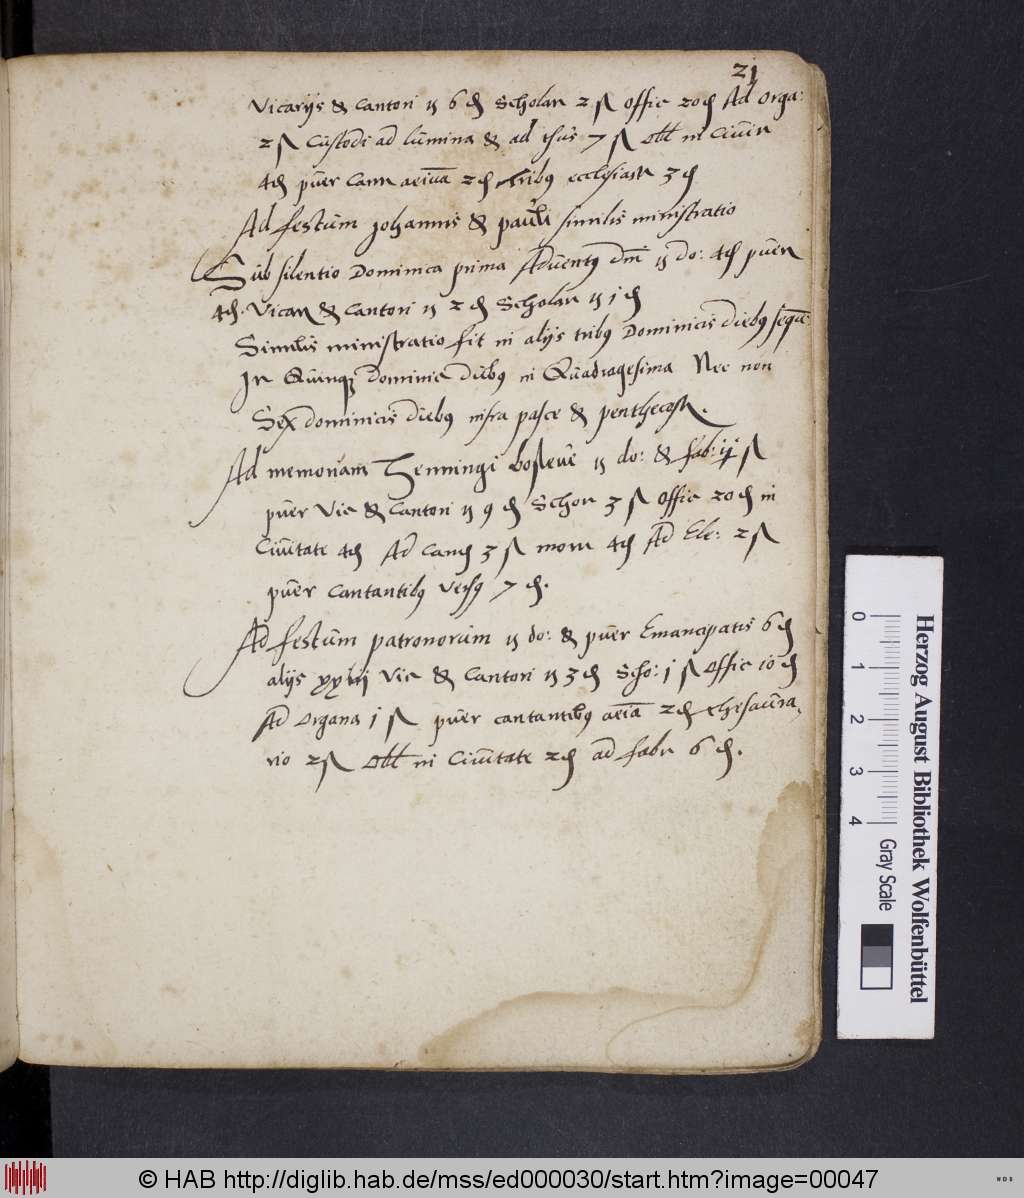 21
Vicarijs & Cantori 6 Scholar 2 ß Offic 20 Ad Orga:
2 ß Custodi ad lumina & ad thus 7 ß Obl in Civit
4 puer Cann 2 tribus ecclesiast 3
Ad festum Johannis & pauli similis ministratio
Sub silentio Dominica prima Adventus Dni do: 4 puer
4 Vicar & Cantori 2 Scholar 1
Similis ministratio fit in alijs tribus Dominicis diebus seque
In Quinque Dominic diebus in Quadragesima Nec non
Sex dominicis diebus infra pasce & penthecost.
Ad memoriam Henningi do: & fab: ij ß
puer Vic & Cantori 9 Schor 3 ß Offic 20 in
Civitate 4 Ad Cand 3 ß 4 Ad Ele: 2 ß
puer Cantantibus versus 7
Ad festum patronorum do: & puer Emancipatis 6
alijs Vic & Cantori 3 Scho: 1 ß Offic 10
Ad Organa 1 ß puer cantantibus 2 thesaura
rio 2 ß Obl in Civitate 2 ad fabr 6
0 1 2 3 4
Gray Scale
Herzog August Bibliothek Wolfenbüttel
© HAB http://diglib.hab.de/mss/ed000030/start.htm?image=00047